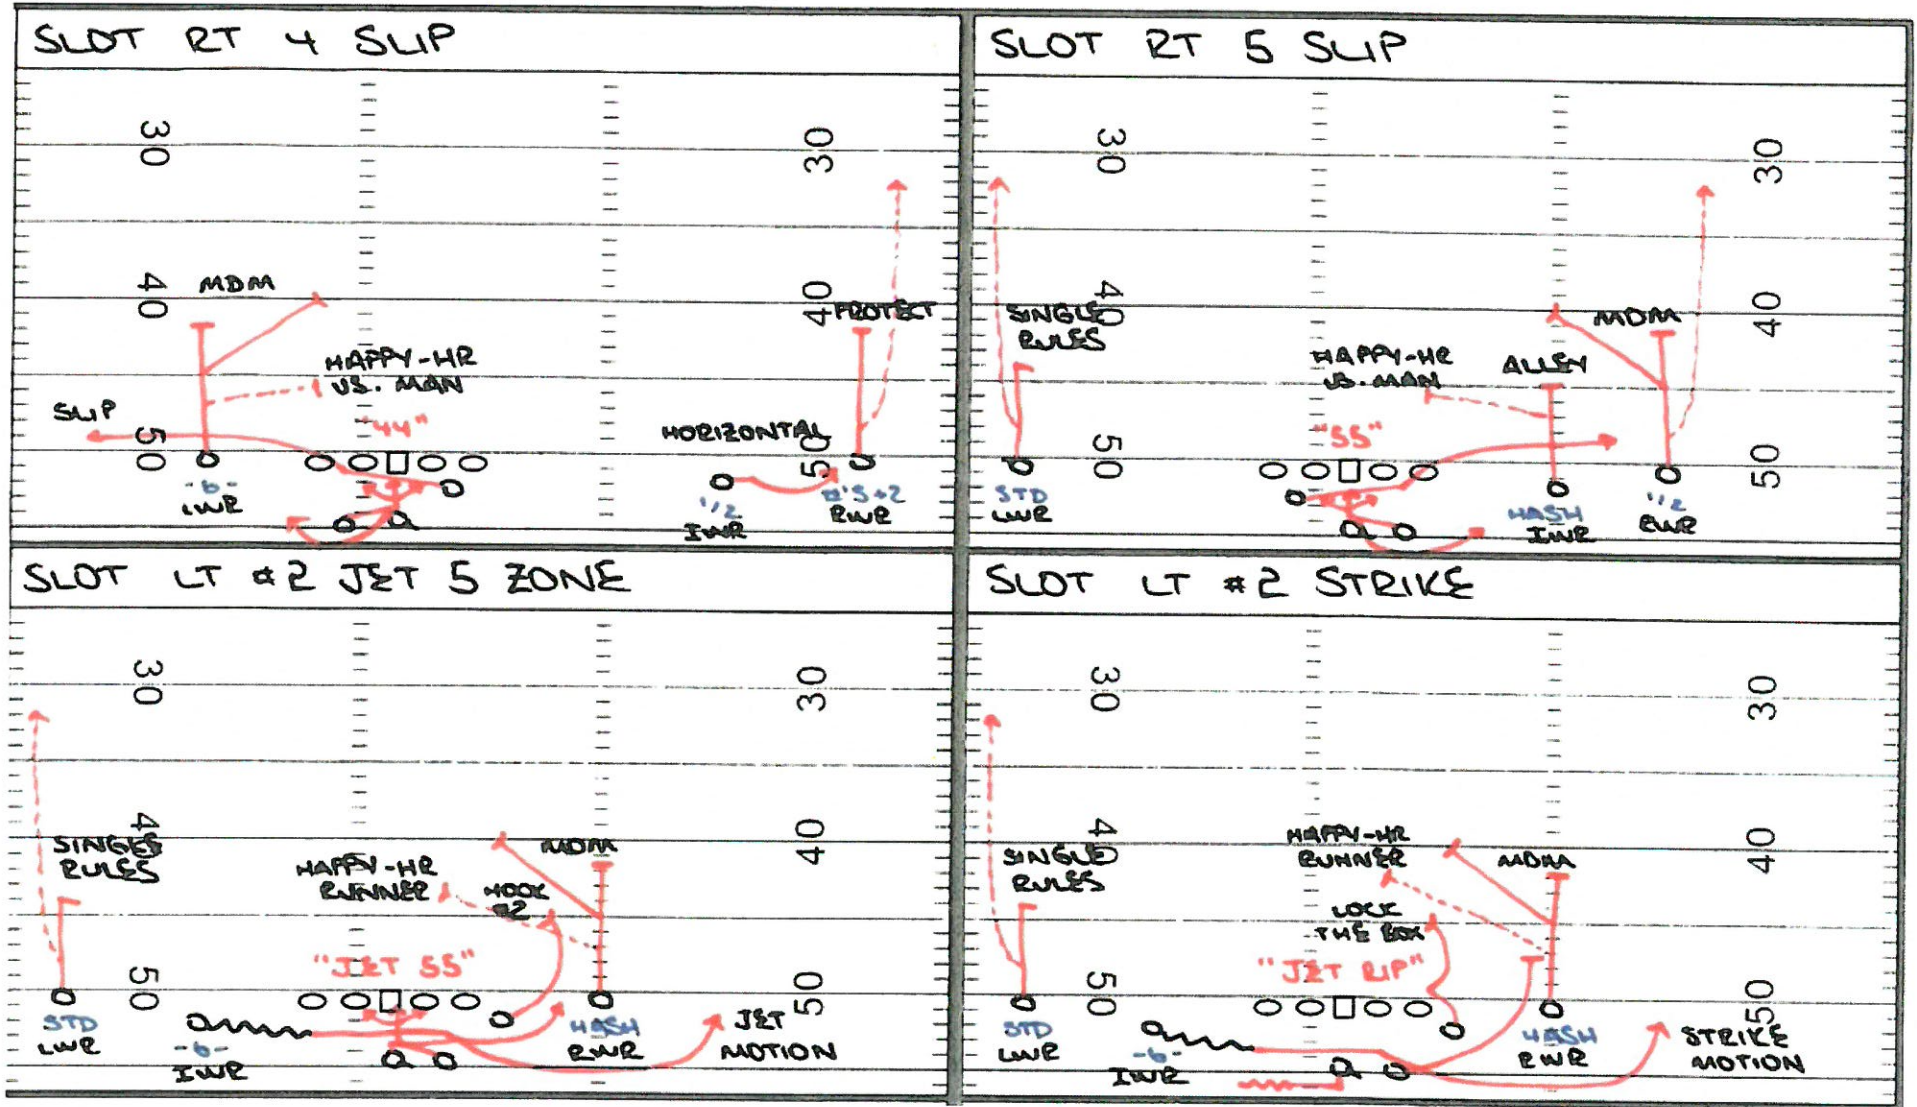 SLOT RT 4 SLIP
30
30
40
MDM
40
PROTECT
HAPPY-HR
VS. MAN
SLIP
"44"
HORIZONTAL
50
50
-6-
LWR
1/2
IWR
#'S+2
RWR
SLOT RT 5 SLIP
30
30
40
40
SINGLE
RULES
MDM
HAPPY-HR
VS. MAN
ALLEY
"55"
50
50
STD
LWR
HASH
IWR
1/2
RWR
SLOT LT #2 JET 5 ZONE
30
30
40
40
SINGLE
RULES
MDM
HAPPY-HR
RUNNER
HOOK
#2
"JET 55"
50
50
STD
LWR
-6-
IWR
HASH
RWR
JET
MOTION
SLOT LT #2 STRIKE
30
30
40
40
SINGLE
RULES
HAPPY-HR
RUNNER
MDM
LOCK
THE BOX
"JET RIP"
50
50
STD
LWR
-6-
IWR
HASH
RWR
STRIKE
MOTION